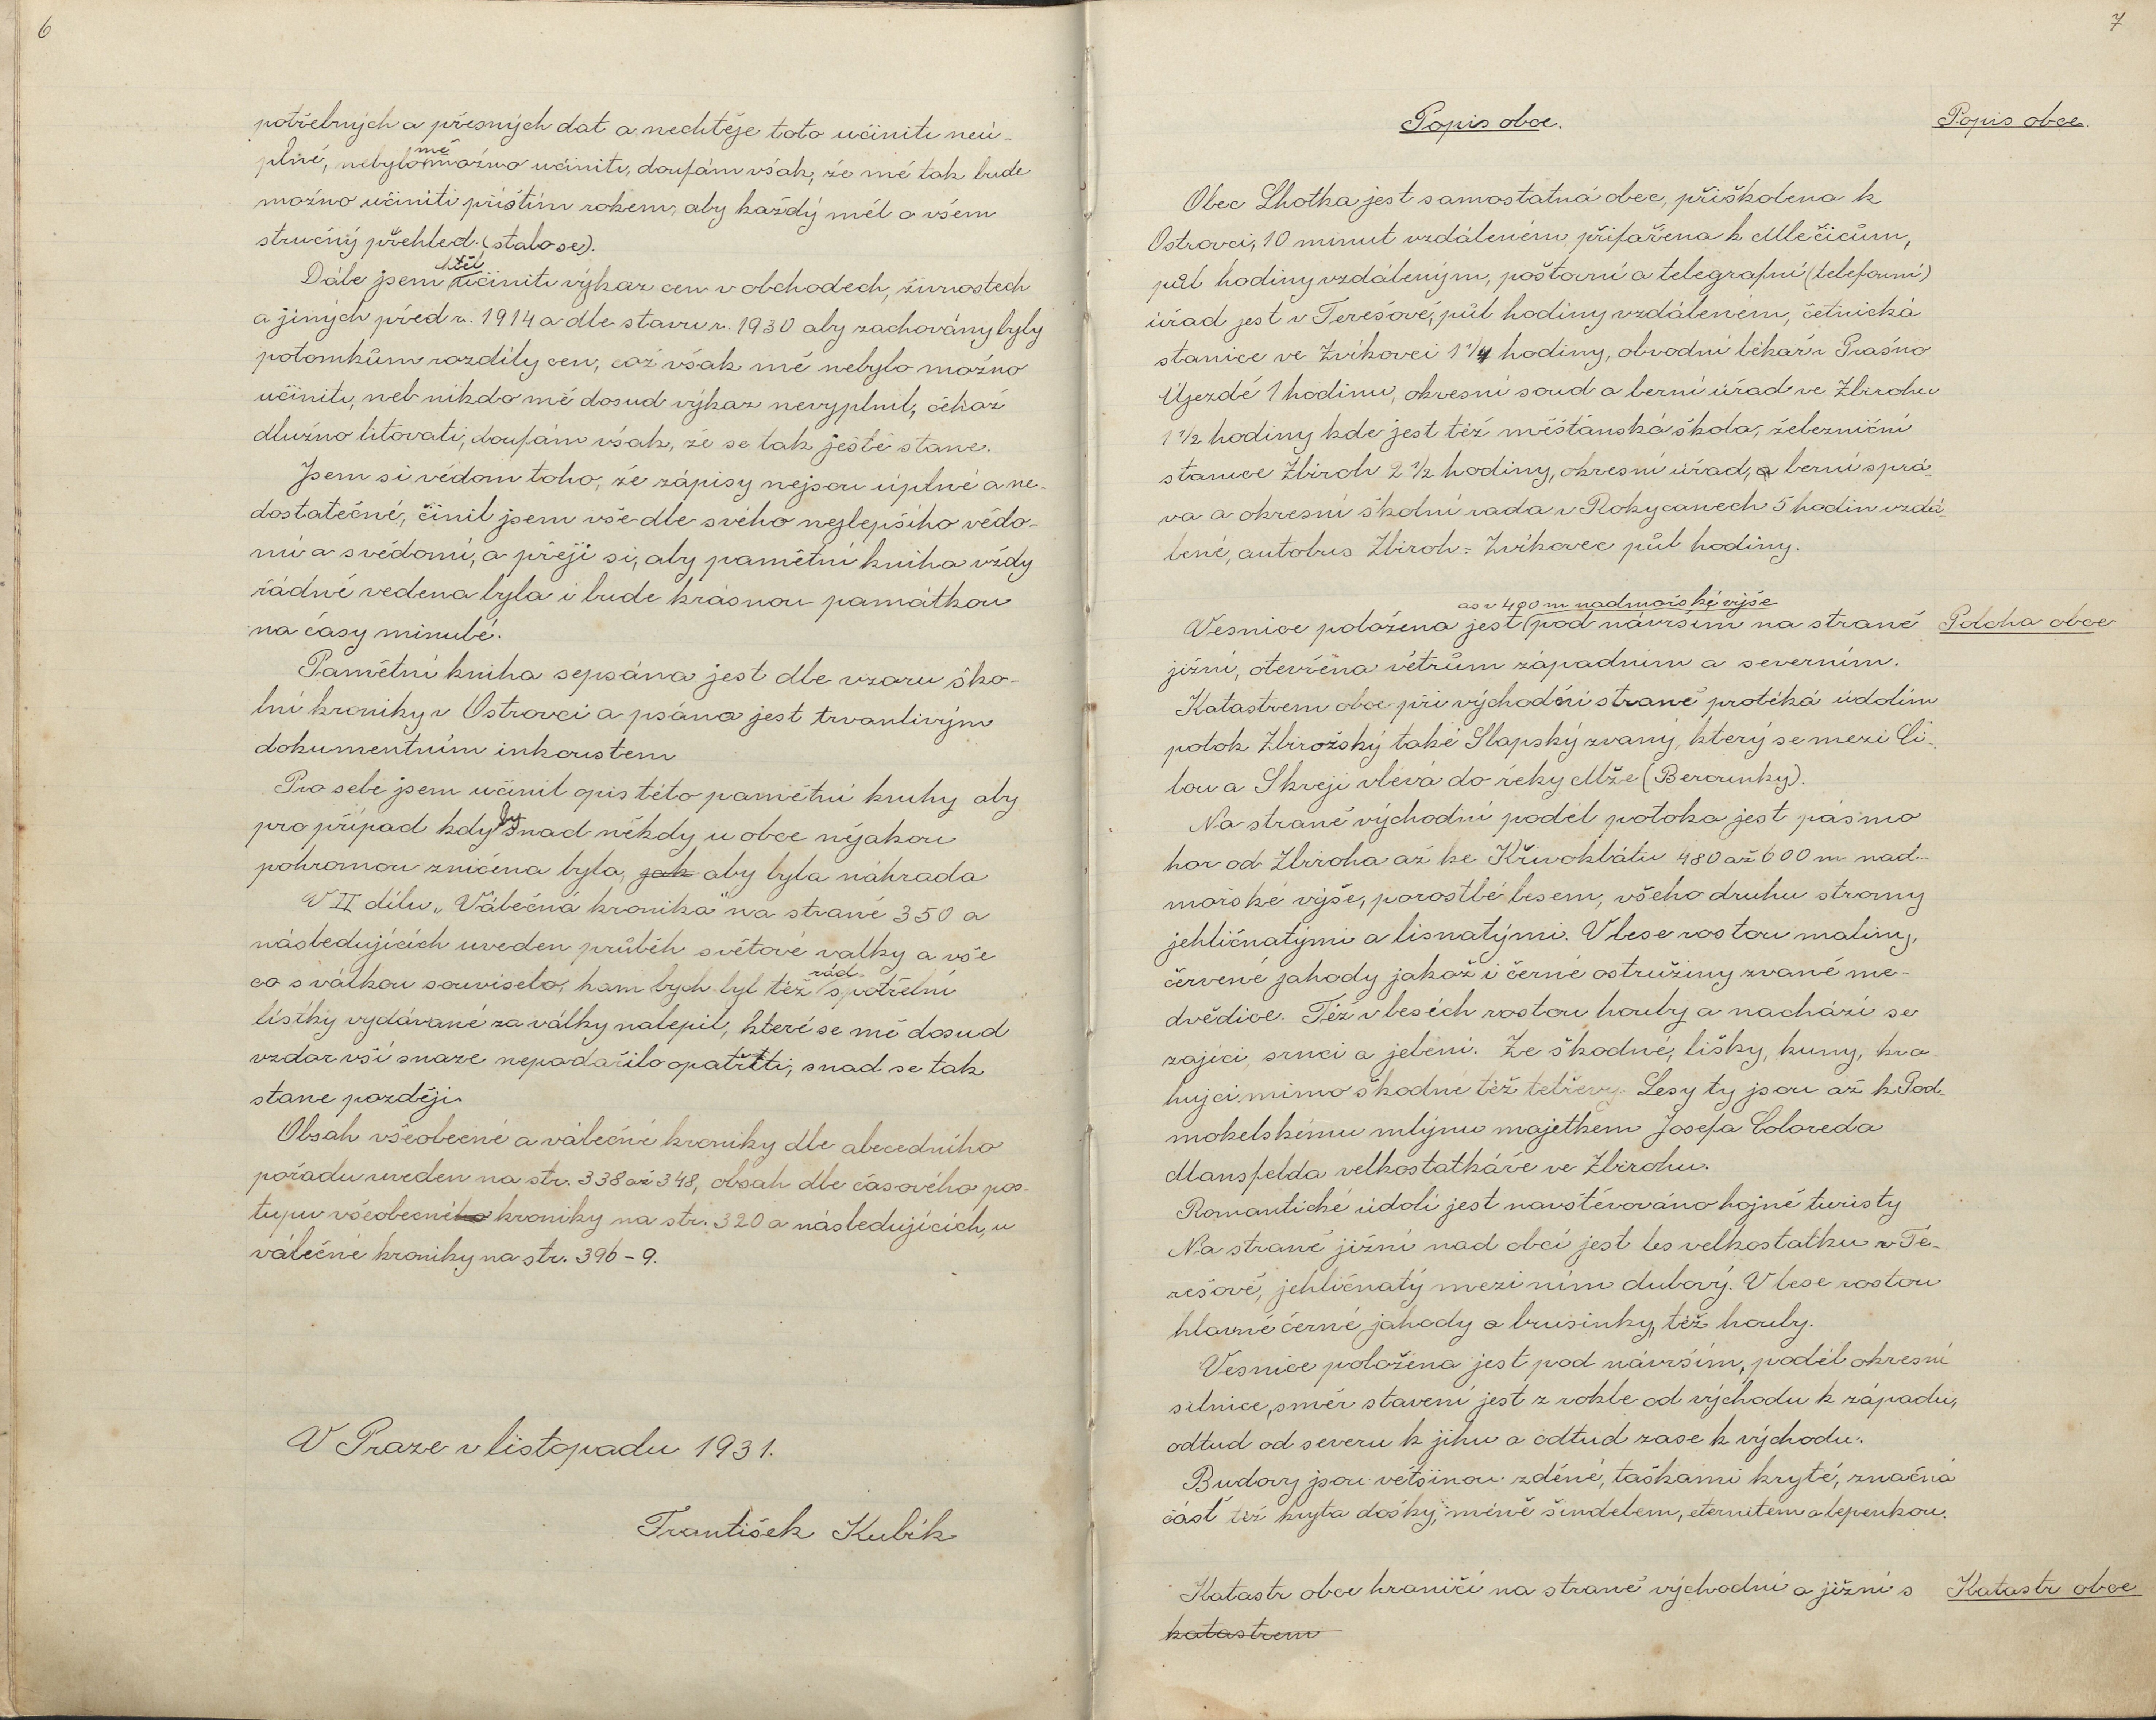 6
potřebných a přesných dat a nechtěje toto učiniti neú-
plné, nebylo mě možno učiniti, doufám však, že mě tak bude
možno učiniti příštím rokem, aby každý měl o všem
stručný přehled. (stalo se).
Dále jsem chtěl učiniti výkaz cen v obchodech, živnostech
a jiných před r. 1914 a dle stavu r. 1930 aby zachovány byly
potomkům rozdíly cen, což však mě nebylo možno
učiniti, neb nikdo mě dosud výkaz nevyplnil, čehož
dlužno litovati, doufám však, že se tak ještě stane.
Jsem si vědom toho, že zápisy nejsou úplné a ne-
dostatečné, činil jsem vše dle svého nejlepšího vědo-
mí a svědomí, a přeji si, aby pamětní kniha vždy
řádně vedena byla i bude krásnou památkou
na časy minulé.
Pamětní kniha sepsána jest dle vzoru ško-
lní kroniky v Ostrovci a psána jest trvanlivým
dokumentním inkoustem
Pro sebe jsem učinil opis této pamětní knihy aby
pro případ kdyby snad někdy u obce nějakou
pohromou zničena byla, jak aby byla náhrada
V II dílu „Válečná kronika" na straně 350 a
následujících uveden průběh světové valky a vše
co s válkou souviselo, kam bych byl též rád spotřební
lístky vydávané za války nalepil, které se mě dosud
vzdor vší snaze nepodařilo opatřiti, snad se tak
stane později.
Obsah všeobecné a válečné kroniky dle abecedního
pořadu uveden na str. 338 až 348, obsah dle časového pos-
tupu všeobecného kroniky na str. 320 a následujících, u
válečné kroniky na str. 396-9.
V Praze v listopadu 1931.
František Kubík
7
Popis obce.
Popis obce.
Obec Lhotka jest samostatná obec, přiškolena k
Ostrovci, 10 minut vzdáleném přifařena k Mlečicům,
půl hodiny vzdáleným, poštovní a telegrafní (telefonní)
úřad jest v Terešově, půl hodiny vzdáleném, četnická
stanice ve Zvíkovci 1 1/4 hodiny, obvodní lékař v Prašno
Újezdě 1 hodinu, okresní soud a berní úřad ve Zbirohu
1 1/2 hodiny kde jest též měšťanská škola, železniční
stanice Zbiroh 2 1/2 hodiny, okresní úřad, a berní sprá-
va a okresní školní rada v Rokycanech 5 hodin vzdá-
lené, autobus Zbiroh = Zvíkovec půl hodiny.
asi v 490 m nadmořské výše
Vesnice položena jest pod návrším na straně
Poloha obce
jižní, otevřena větrům západním a severním.
Katastrem obce při východní straně protéká údolím
potok Zbirožský také Slapský zvaný, který se mezi Či-
lou a Skreji vlévá do řeky Mže (Berounky).
Na straně východní podél potoka jest pásmo
hor od Zbiroha až ke Křivoklátu 480 až 600 m nad-
mořské výše, porostlé lesem, všeho druhu stromy
jehličnatými a lisnatými. V lese rostou maliny,
červené jahody jakož i černé ostružiny zvané me-
dvědice. Též v lesích rostou houby a nachází se
zajíci, srnci a jeleni. Ze škodné, lišky, kuny, kra-
hujci, mimo škodné též tetřevy. Lesy ty jsou až k Pod-
mokelskému mlýnu majetkem Josefa Coloreda
Mansfelda velkostatkáře ve Zbirohu.
Romantické údolí jest navštěvováno hojně turisty
Na straně jižní nad obcí jest les velkostatku v Te-
rešově, jehličnatý mezi ním dubový. V lese rostou
hlavně černé jahody a brusinky, též houby.
Vesnice položena jest pod návrším, podél okresní
silnice, směr stavení jest z rokle od východu k západu,
odtud od severu k jihu a odtud zase k východu.
Budovy jsou většinou zděné, taškami kryté, značná
část též kryta došky, méně šindelem, eternitem a lepenkou.
Katastr obce hraničí na straně východní a jižní s
Katastr obce
katastrem